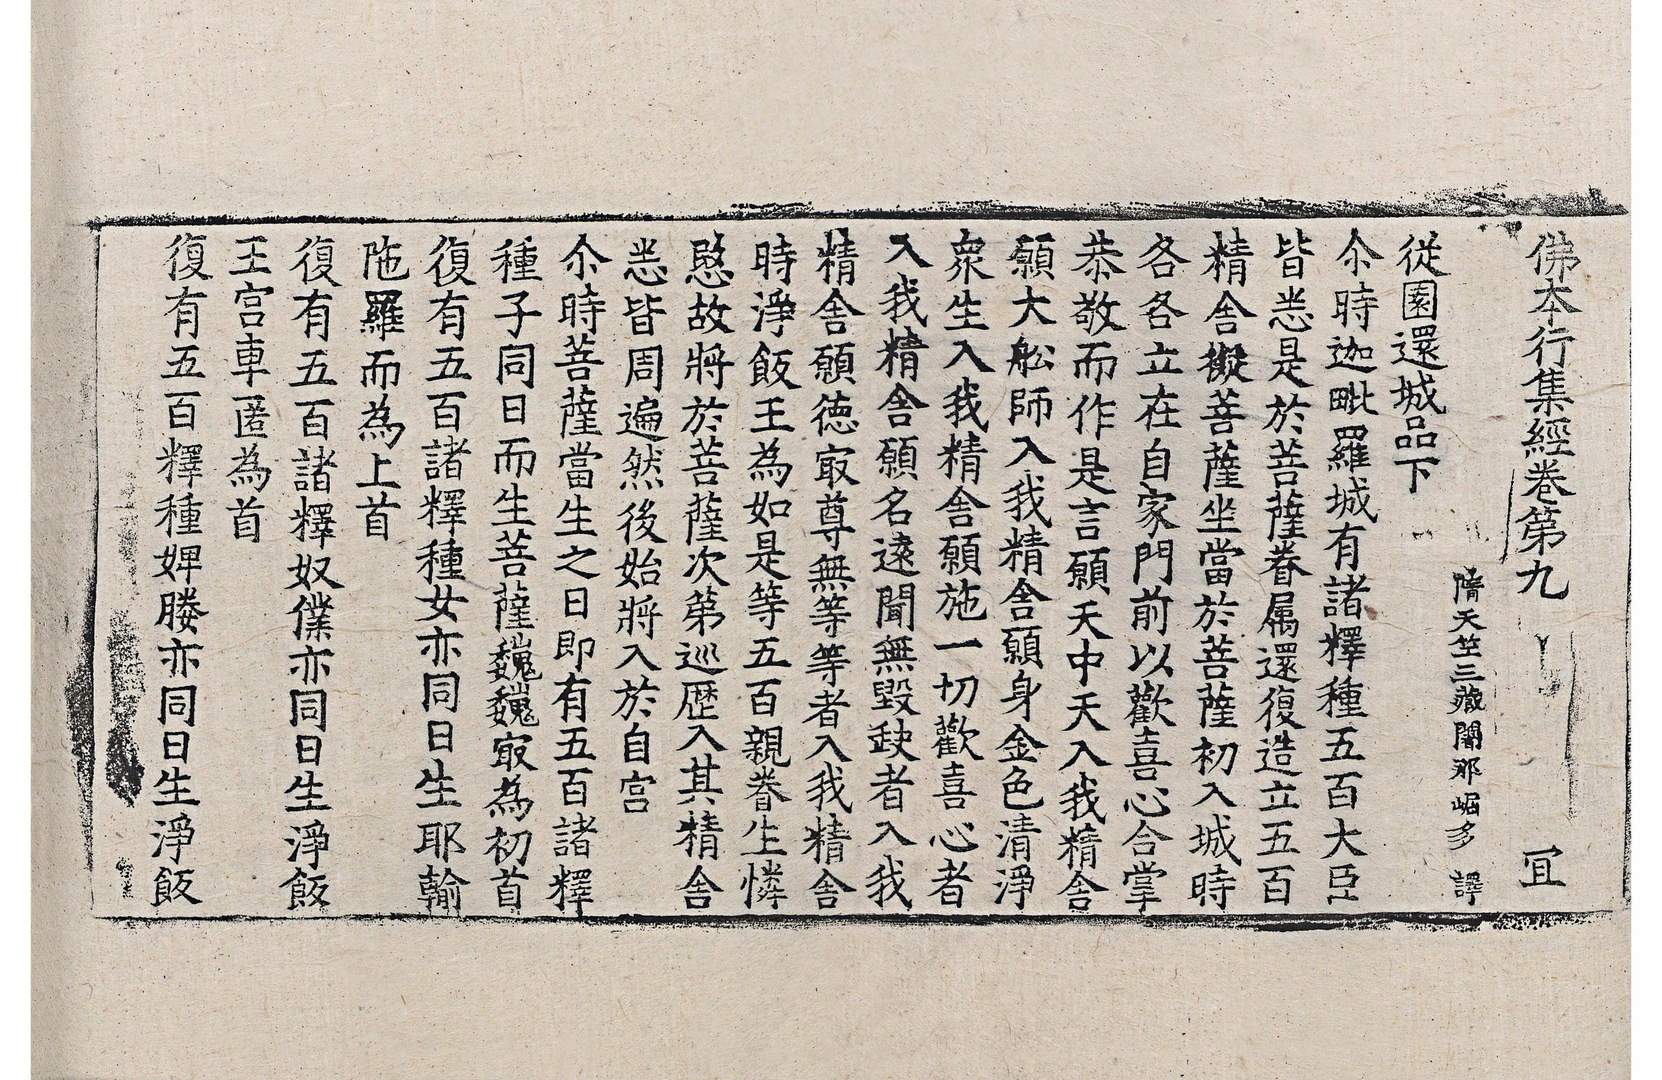 佛本行集經卷第九　冝
隋天竺三藏闍那崛多　譯
從園還城品下
尒時迦毗羅城有諸釋種五百大臣
皆悉是於菩薩眷属還復造立五百
精舎擬菩薩坐當於菩薩初入城時
各各立在自家門前以歡喜心合掌
恭敬而作是言願天中天入我精舎
願大舩師入我精舎願身金色清淨
衆生入我精舎願施一切歡喜心者
入我精舎願名遠聞無毀缺者入我
精舎願徳㝡尊無等等者入我精舎
時淨飯王為如是等五百親眷生憐
愍故將於菩薩次第巡歴入其精舎
悉皆周遍然後始將入於自宫
尒時菩薩當生之日即有五百諸釋
種子同日而生菩薩巍巍㝡為初首
復有五百諸釋種女亦同日生耶輸
陁羅而為上首
復有五百諸釋奴僕亦同日生淨飯
王宫車匿為首
復有五百釋種婢媵亦同日生淨飯